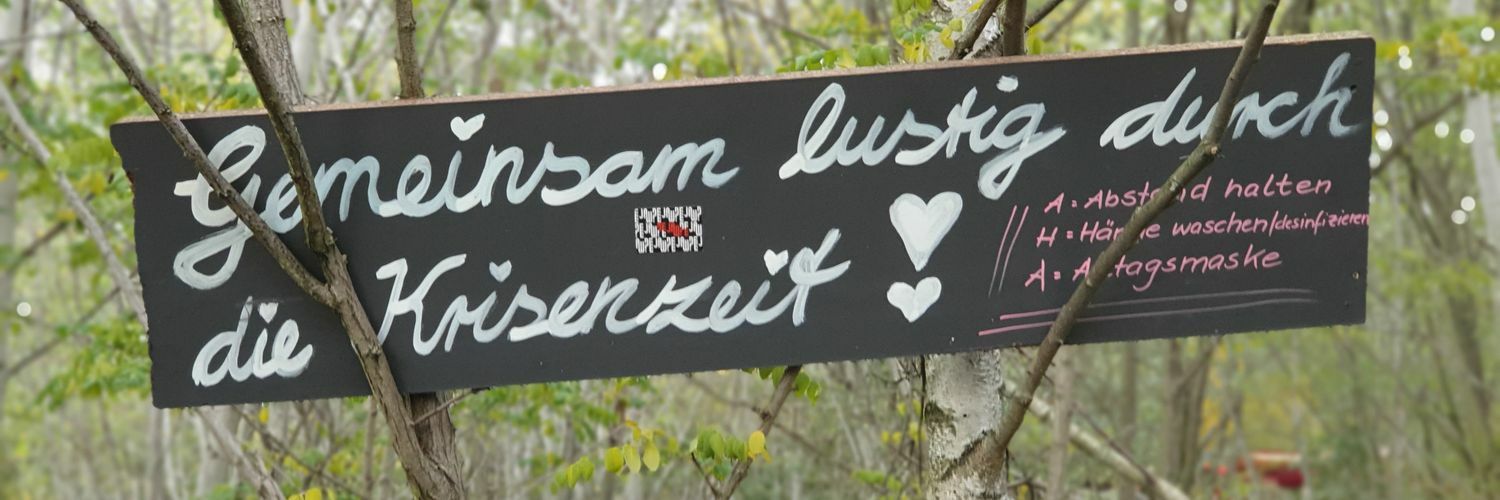 Gemeinsam lustig durch
die Krisenzeit
A = Abstand halten
H = Hände waschen/desinfizieren
A = Alltagsmaske